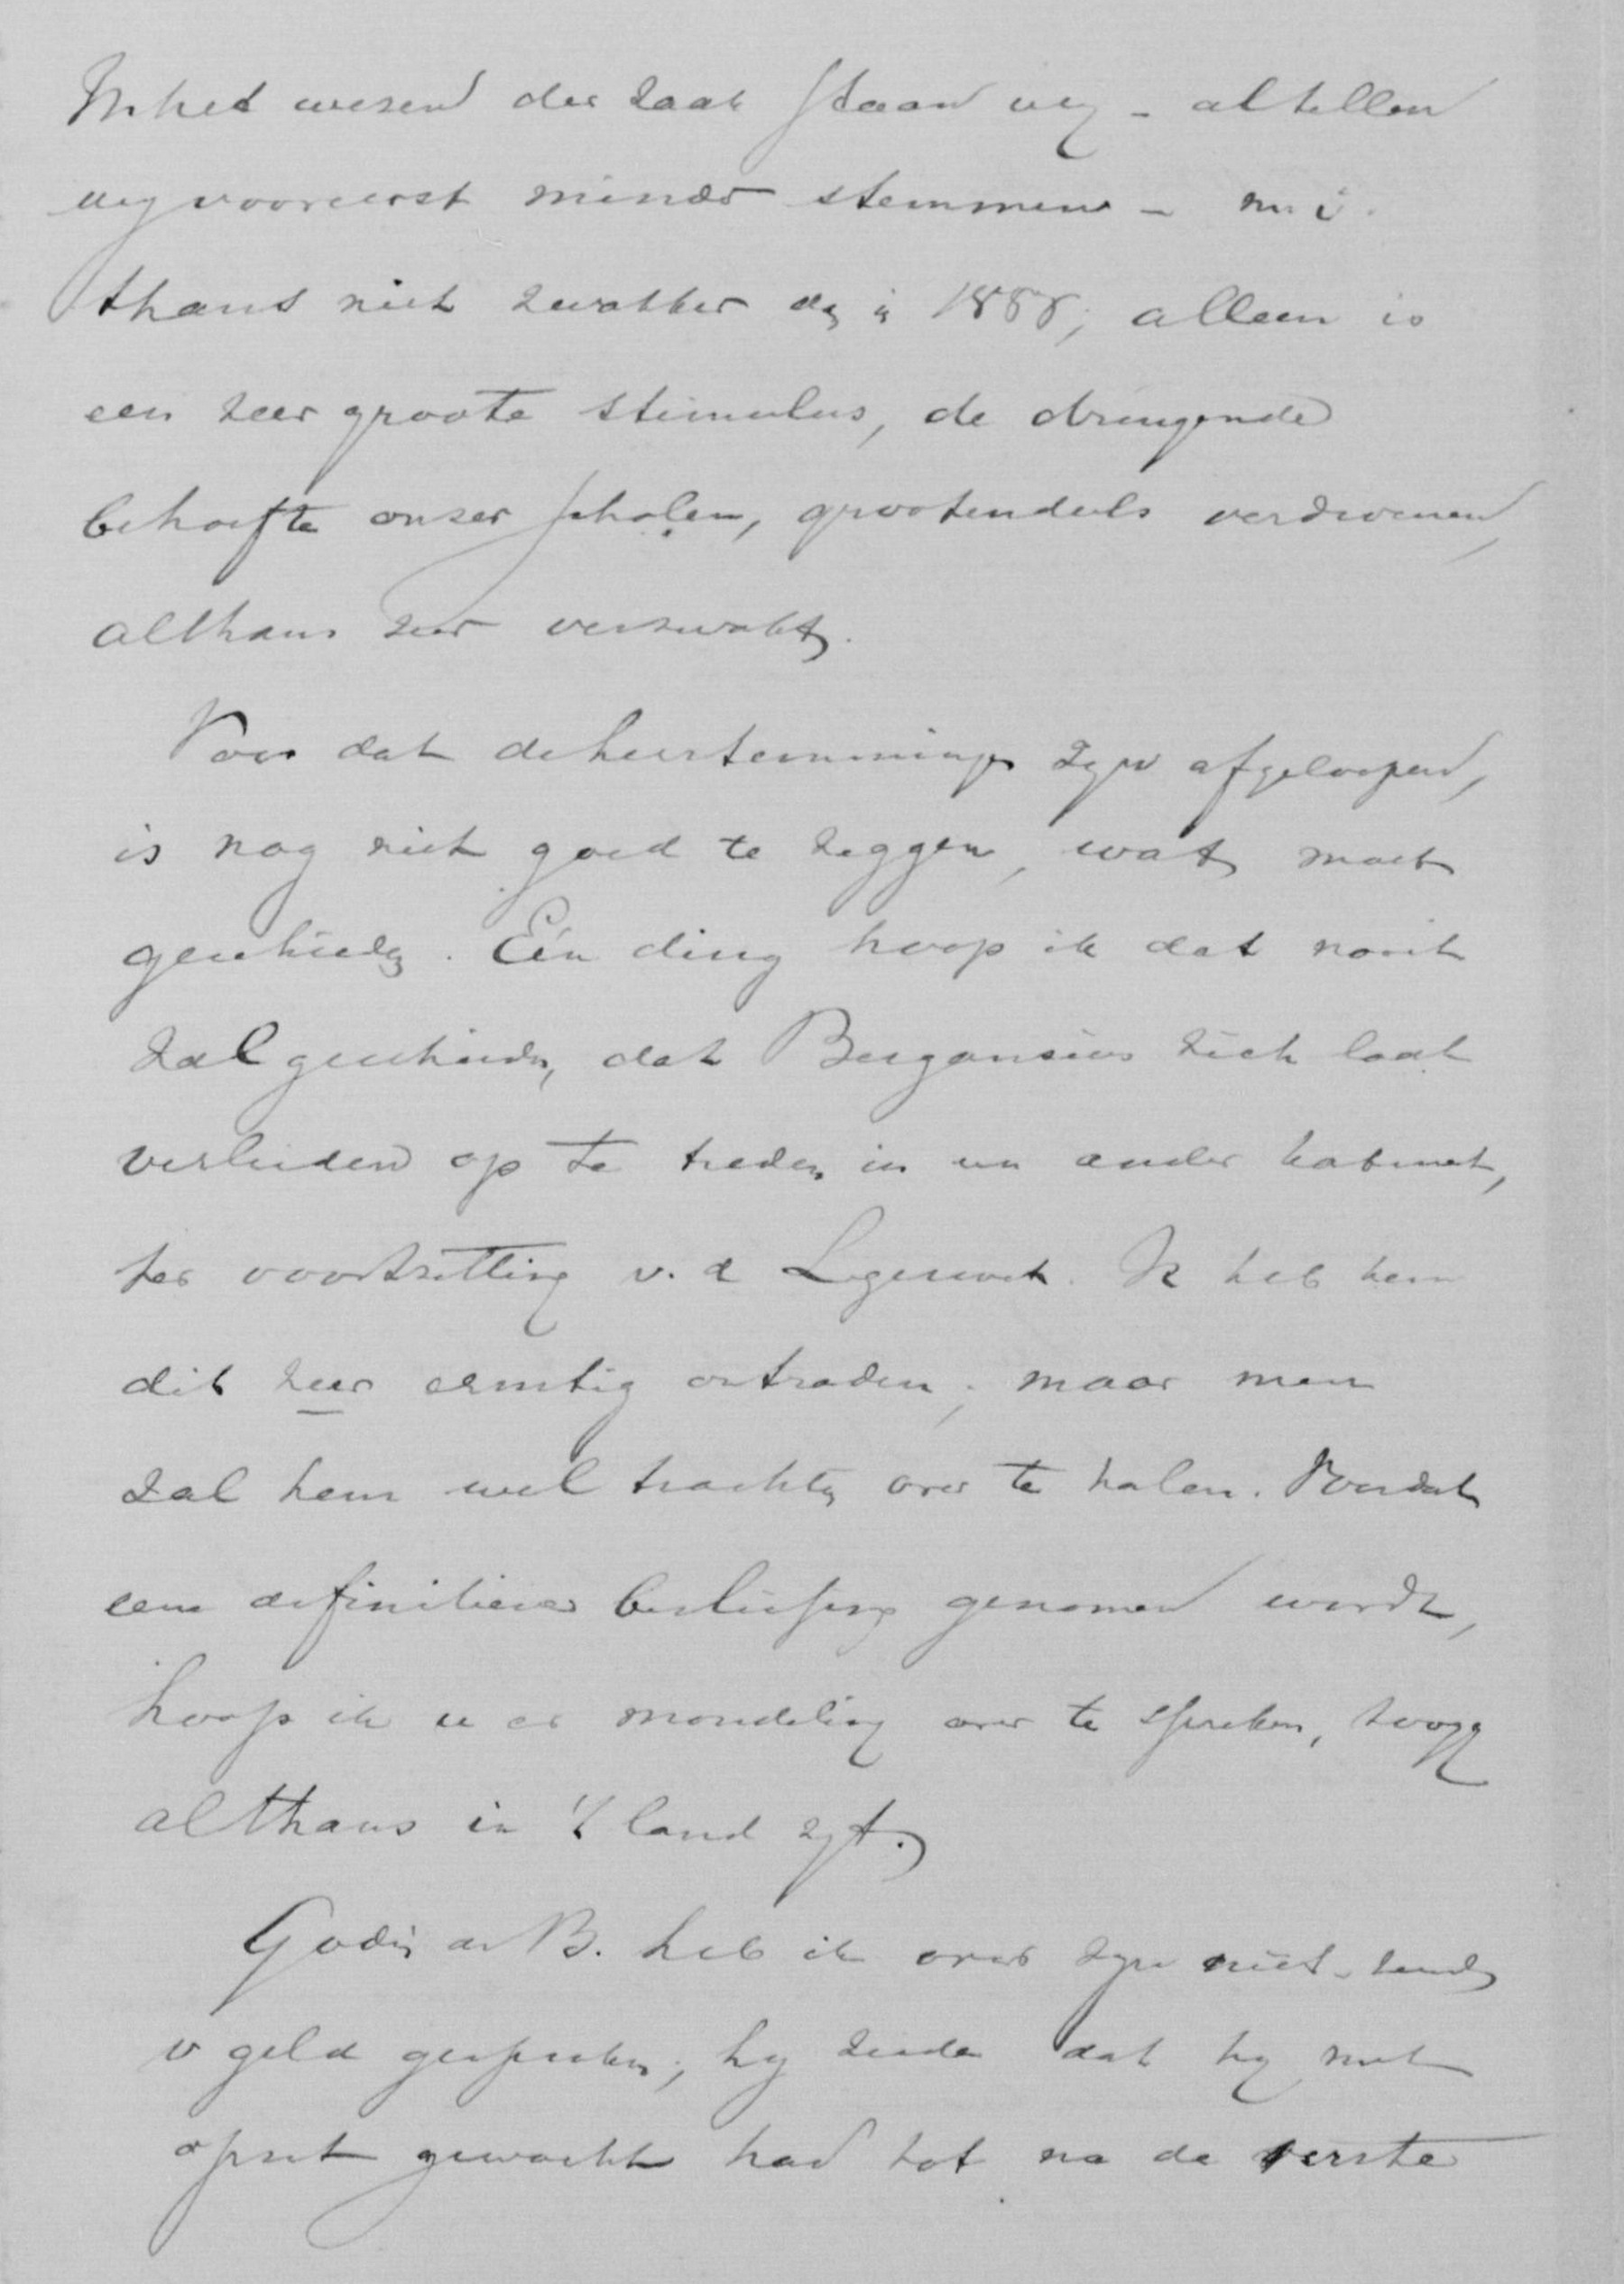 In het wezen der zaak staan wij - al tellen
wij vooreerst minder stemmen - m.i.
thans niet zwakker dan in 1888; alleen is
een zeer groote stimulus, de dringende
behoefte onzer scholen, grootendeels verdwenen,
althans zeer verzwakt.
Voor dat de herstemmingen zijn afgeloopen,
is nog niet goed te zeggen, wat moet
geschieden. Eén ding hoop ik dat nooit
zal geschieden, dat Bergansius zich laat
verleiden op te treden in een ander kabinet,
ter voortzetting v. d Legerwet. Ik heb hem
dit zeer ernstig ontraden; maar men
zal hem wel trachten over te halen. Voordat
eene definitieve beslissing genomen wordt,
hoop ik u er mondeling over te spreken, zoo gij
althans in 't land zijt.
Godin de B. heb ik over zijn niet-zenden
v geld gesproken; hij zeide dat hij met
opzet gewacht had tot na de eerste